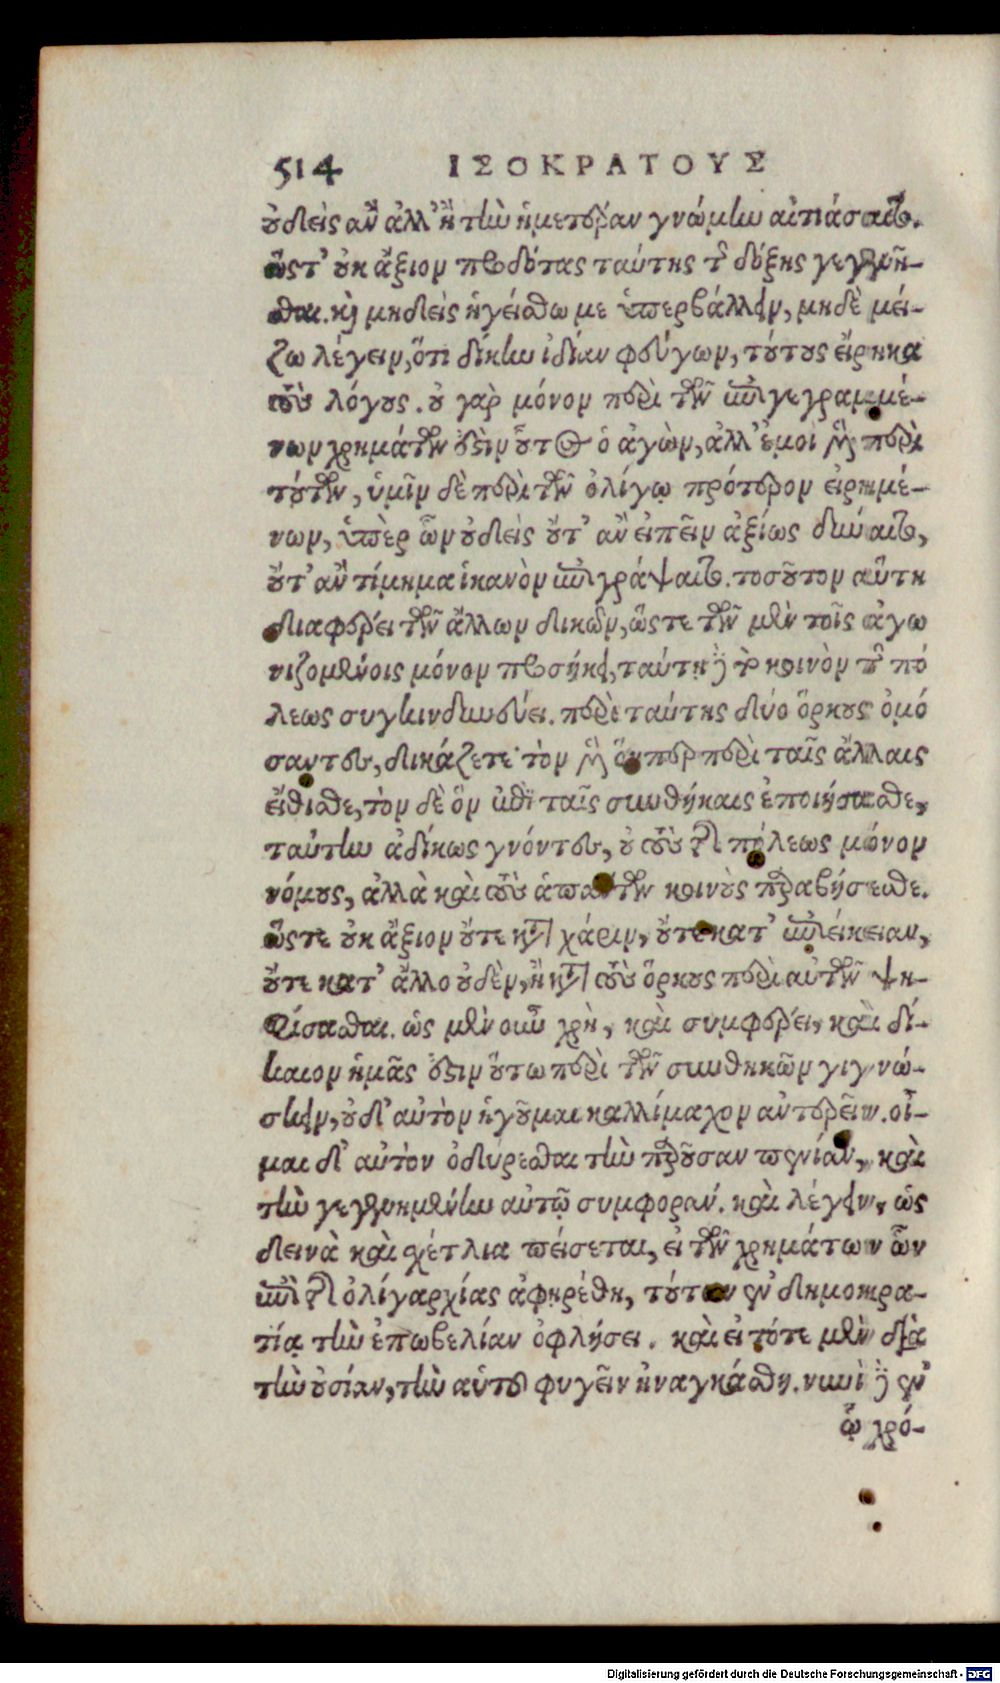 514 ΙΣΟΚΡΑΤΟΥΣ
οὐδεὶς ἂν ἀλλ' ἢ τὴν ἡμετέραν γνώμην αἰτιάσαιτο.
ὥστ' οὐκ ἄξιον προδότας ταύτης τῆς δόξης γεγενῆ-
σθαι. καὶ μηδεὶς ἡγείσθω με ὑπερβάλλειν, μηδὲ μεί-
ζω λέγειν, ὅτι δίκην ἰδίαν φεύγων, τούτους εἴρηκα
τοὺς λόγους. οὐ γὰρ μόνον περὶ τῶν ἐπιγεγραμμέ-
νων χρημάτων ἐστὶν οὗτος ὁ ἀγὼν, ἀλλ' ἐμοὶ μὲν περὶ
τούτων, ὑμῖν δὲ περὶ τῶν ὀλίγῳ πρότερον εἰρημέ-
νων, ὑπὲρ ὧν οὐδεὶς οὔτ' ἂν εἰπεῖν ἀξίως δύναιτο,
οὔτ' ἂν τίμημα ἱκανὸν ἐπιγράψαιτο. τοσοῦτον αὕτη
διαφέρει τῶν ἄλλων δικῶν, ὥστε τῶν μὲν τοῖς ἀγω
νιζομένοις μόνον προσήκει, ταύτῃ δὲ τὸ κοινὸν τῆς πό
λεως συγκινδυνεύει. περὶ ταύτης δύο ὅρκους ὀμό
σαντες, δικάζετε· τὸν μὲν ὅνπερ περὶ ταῖς ἄλλαις
εἴθισθε, τὸν δὲ ὃν ἐπὶ ταῖς συνθήκαις ἐποιήσασθε,
ταύτην ἀδίκως γνόντες, οὐ τοὺς τῆς πόλεως μόνον
νόμους, ἀλλὰ καὶ τοὺς ἁπάντων κοινοὺς παραβήσεσθε.
ὥστε οὐκ ἄξιον οὔτε κατὰ χάριν, οὔτε κατ' ἐπιείκειαν,
οὔτε κατ' ἄλλο οὐδὲν, ἢ κατὰ τοὺς ὅρκους περὶ αὐτῶν ψη-
φίσασθαι. ὡς μὲν οὖν χρὴ, καὶ συμφέρει, καὶ δί-
καιον ἡμᾶς ἐστιν οὕτω περὶ τῶν συνθηκῶν γιγνώ-
σκειν, οὐδ' αὐτὸν ἡγοῦμαι καλλίμαχον ἀντερεῖν. οἶ-
μαι δ' αὐτὸν ὀδύρεσθαι τὴν παροῦσαν πενίαν, καὶ
τὴν γεγενημένην αὐτῷ συμφοράν. καὶ λέγειν, ὡς
δεινὰ καὶ σχέτλια πείσεται, εἰ τῶν χρημάτων ὧν
ἐπὶ τῆς ὀλιγαρχίας ἀφῃρέθη, τούτων ἐν δημοκρα-
τίᾳ τὴν ἐπωβελίαν ὀφλήσει. καὶ εἰ τότε μὲν διὰ
τὴν οὐσίαν, τὴν αὑτοῦ φυγεῖν ἠναγκάσθη. νυνὶ δὲ ἐν
ᾧ χρό-
Digitalisierung gefördert durch die Deutsche Forschungsgemeinschaft - DFG